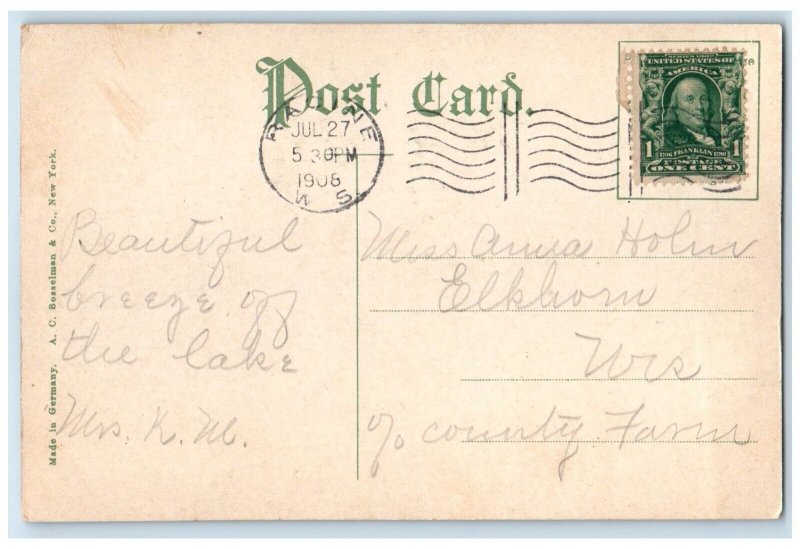 Post Card.
RACINE
JUL 27
5 30PM
1908
WIS
UNITED STATES OF
AMERICA
1 1706 FRANKLIN 1790 1
POSTAGE
ONE CENT
Made in Germany. A. C. Bosselman & Co., New York.
Beautiful
breeze off
the lake
Mrs. K. M.
Miss Anna Holm
Elkhorn
Wis
c/o county Farm